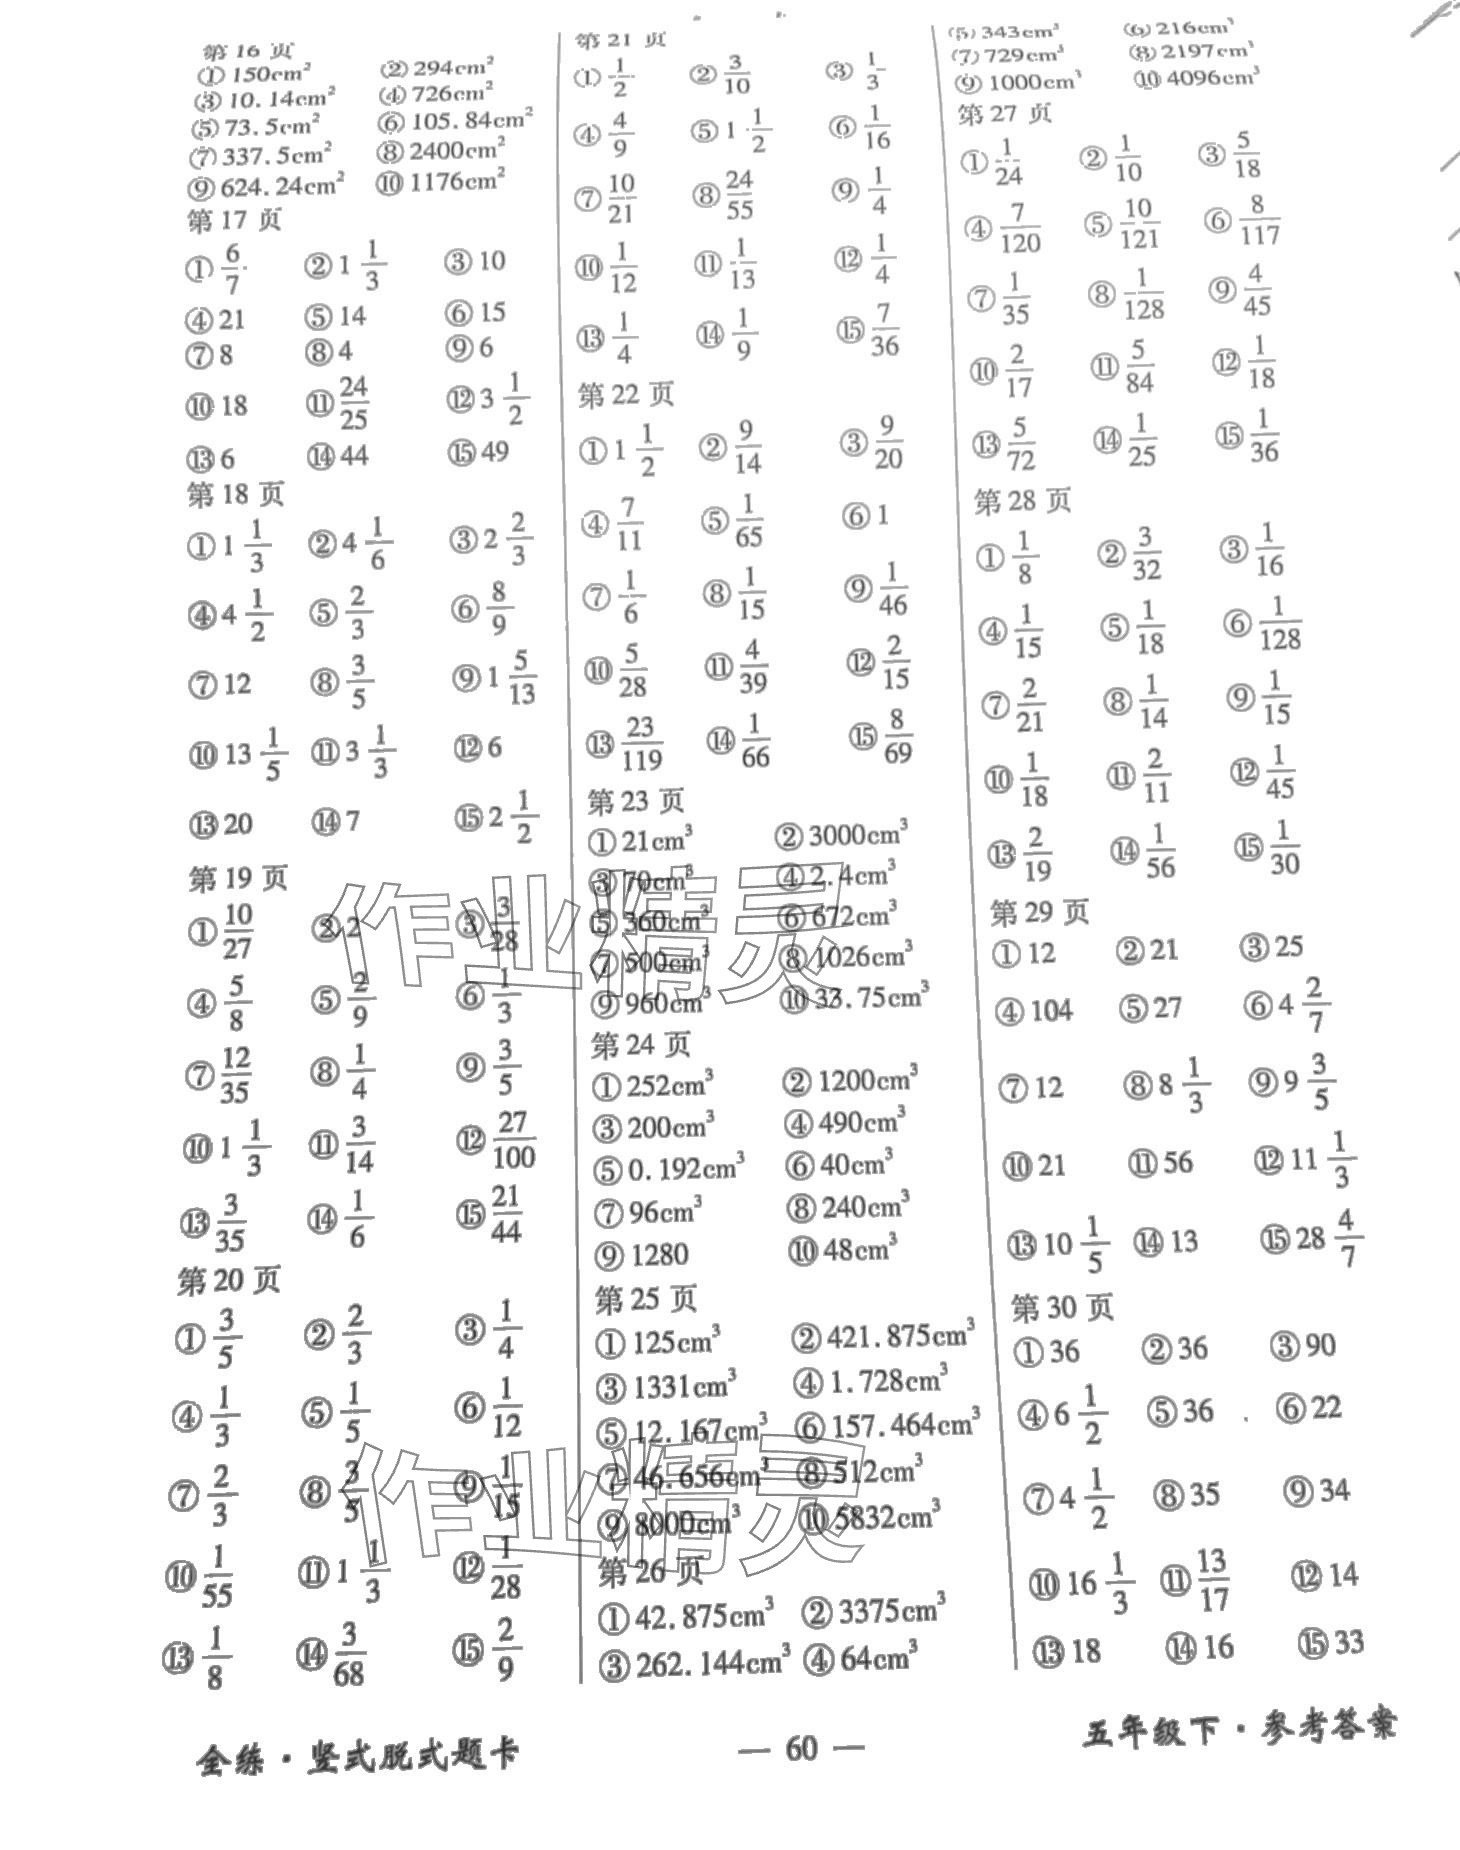 第 16 页
① 150cm² ② 294cm²
③ 10.14cm² ④ 726cm²
⑤ 73.5cm² ⑥ 105.84cm²
⑦ 337.5cm² ⑧ 2400cm²
⑨ 624.24cm² ⑩ 1176cm²
第 17 页
① 6/7 ② 1 1/3 ③ 10
④ 21 ⑤ 14 ⑥ 15
⑦ 8 ⑧ 4 ⑨ 6
⑩ 18 ⑪ 24/25 ⑫ 3 1/2
⑬ 6 ⑭ 44 ⑮ 49
第 18 页
① 1 1/3 ② 4 1/6 ③ 2 2/3
④ 4 1/2 ⑤ 2/3 ⑥ 8/9
⑦ 12 ⑧ 3/5 ⑨ 1 5/13
⑩ 13 1/5 ⑪ 3 1/3 ⑫ 6
⑬ 20 ⑭ 7 ⑮ 2 1/2
第 19 页
① 10/27 ② 2 ③ 3/28
④ 5/8 ⑤ 2/9 ⑥ 1/3
⑦ 12/35 ⑧ 1/4 ⑨ 3/5
⑩ 1 1/3 ⑪ 3/14 ⑫ 27/100
⑬ 3/35 ⑭ 1/6 ⑮ 21/44
第 20 页
① 3/5 ② 2/3 ③ 1/4
④ 1/3 ⑤ 1/5 ⑥ 1/12
⑦ 2/3 ⑧ 3/5 ⑨ 1/15
⑩ 1/55 ⑪ 1 1/3 ⑫ 1/28
⑬ 1/8 ⑭ 3/68 ⑮ 2/9
第 21 页
① 1/2 ② 3/10 ③ 1/3
④ 4/9 ⑤ 1 1/2 ⑥ 1/16
⑦ 10/21 ⑧ 24/55 ⑨ 1/4
⑩ 1/12 ⑪ 1/13 ⑫ 1/4
⑬ 1/4 ⑭ 1/9 ⑮ 7/36
第 22 页
① 1 1/2 ② 9/14 ③ 9/20
④ 7/11 ⑤ 1/65 ⑥ 1
⑦ 1/6 ⑧ 1/15 ⑨ 1/46
⑩ 5/28 ⑪ 4/39 ⑫ 2/15
⑬ 23/119 ⑭ 1/66 ⑮ 8/69
第 23 页
① 21cm³ ② 3000cm³
③ 70cm³ ④ 2.4cm³
⑤ 360cm³ ⑥ 672cm³
⑦ 500cm³ ⑧ 1026cm³
⑨ 960cm³ ⑩ 33.75cm³
第 24 页
① 252cm³ ② 1200cm³
③ 200cm³ ④ 490cm³
⑤ 0.192cm³ ⑥ 40cm³
⑦ 96cm³ ⑧ 240cm³
⑨ 1280 ⑩ 48cm³
第 25 页
① 125cm³ ② 421.875cm³
③ 1331cm³ ④ 1.728cm³
⑤ 12.167cm³ ⑥ 157.464cm³
⑦ 46.656cm³ ⑧ 512cm³
⑨ 8000cm³ ⑩ 5832cm³
第 26 页
① 42.875cm³ ② 3375cm³
③ 262.144cm³ ④ 64cm³
⑤ 343cm³ ⑥ 216cm³
⑦ 729cm³ ⑧ 2197cm³
⑨ 1000cm³ ⑩ 4096cm³
第 27 页
① 1/24 ② 1/10 ③ 5/18
④ 7/120 ⑤ 10/121 ⑥ 8/117
⑦ 1/35 ⑧ 1/128 ⑨ 4/45
⑩ 2/17 ⑪ 5/84 ⑫ 1/18
⑬ 5/72 ⑭ 1/25 ⑮ 1/36
第 28 页
① 1/8 ② 3/32 ③ 1/16
④ 1/15 ⑤ 1/18 ⑥ 1/128
⑦ 2/21 ⑧ 1/14 ⑨ 1/15
⑩ 1/18 ⑪ 2/11 ⑫ 1/45
⑬ 2/19 ⑭ 1/56 ⑮ 1/30
第 29 页
① 12 ② 21 ③ 25
④ 104 ⑤ 27 ⑥ 4 2/7
⑦ 12 ⑧ 8 1/3 ⑨ 9 3/5
⑩ 21 ⑪ 56 ⑫ 11 1/3
⑬ 10 1/5 ⑭ 13 ⑮ 28 4/7
第 30 页
① 36 ② 36 ③ 90
④ 6 1/2 ⑤ 36 ⑥ 22
⑦ 4 1/2 ⑧ 35 ⑨ 34
⑩ 16 1/3 ⑪ 13/17 ⑫ 14
⑬ 18 ⑭ 16 ⑮ 33
作业精灵
作业精灵
全练·竖式脱式题卡 — 60 — 五年级下·参考答案